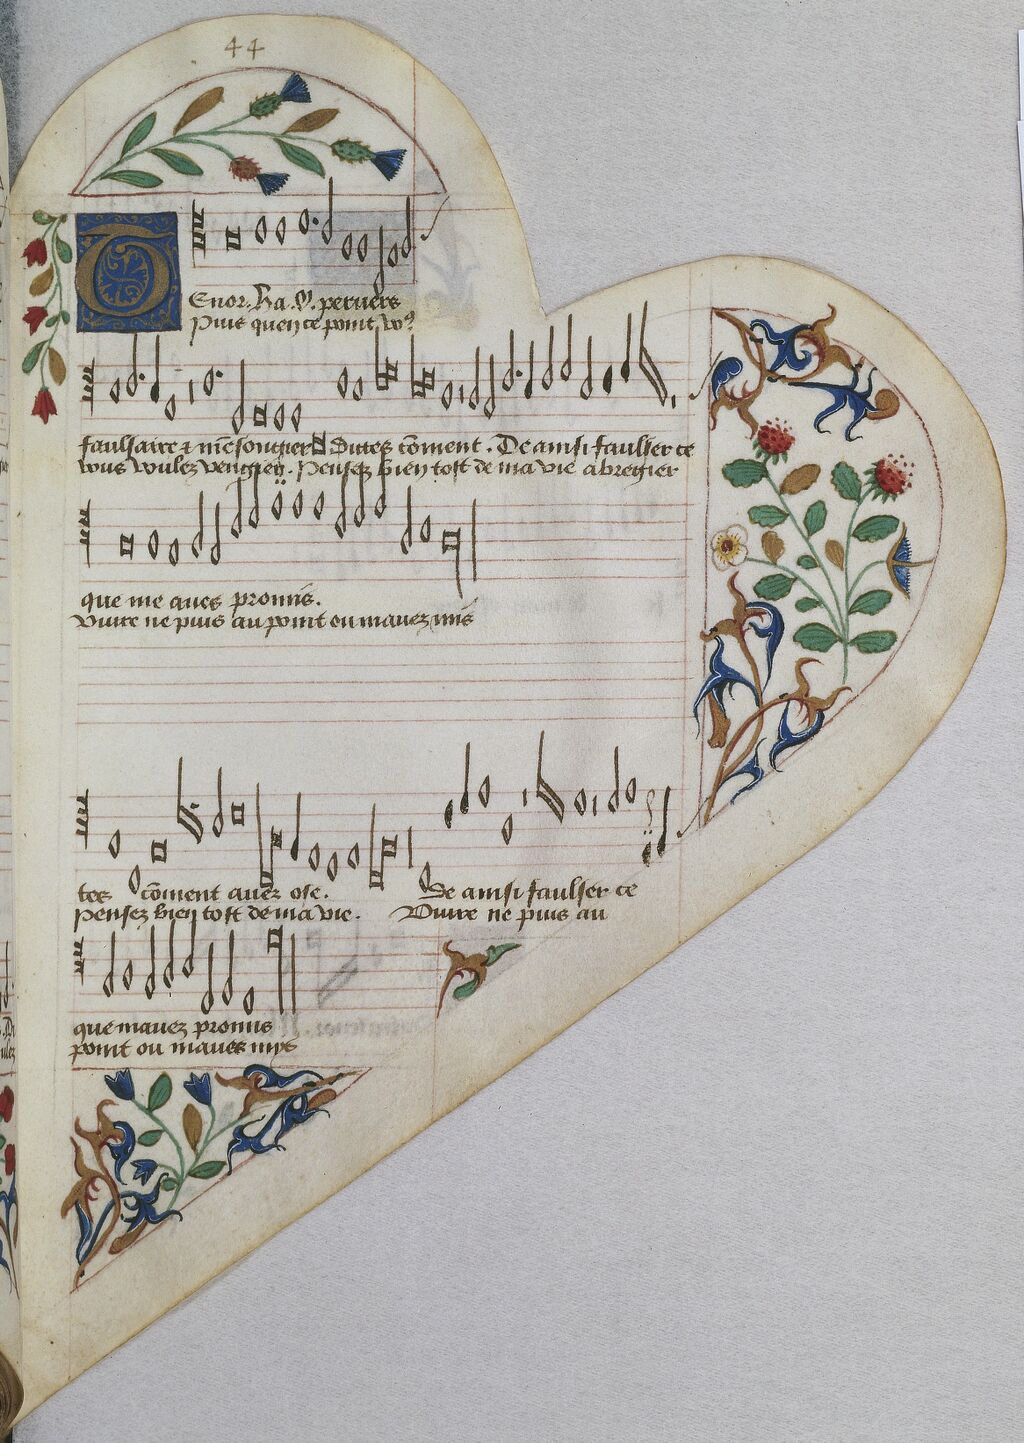 44
Tenor. Ha. O. pervers
Puis quen ce point vo9
faulsaire & mēsongier Dictes cōment. De ainsi faulser ce
vous voulez vengier. Pensez bien tost de ma vie abregier
que me aves promis.
Vivre ne puis au point ou mavez mis
tes cōment avez ose. De ainsi faulser ce
Pensez bien tost de ma vie. Vivre ne puis au
que mavez promis
point ou mavez mys